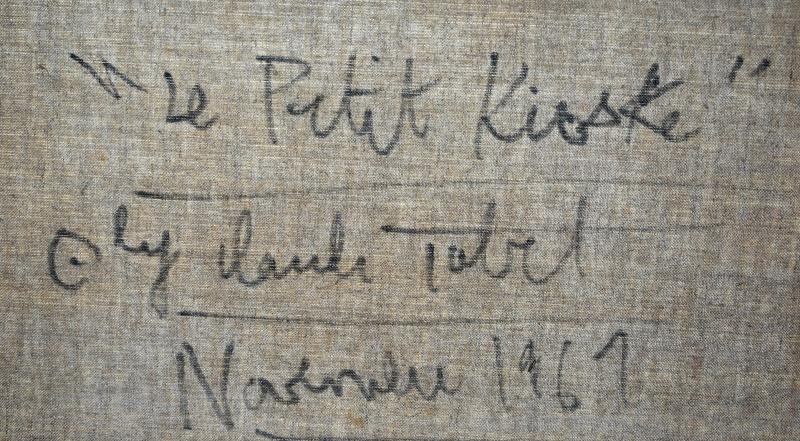 "Le Petit Kioske"
© by Claude Tabet
November 1967